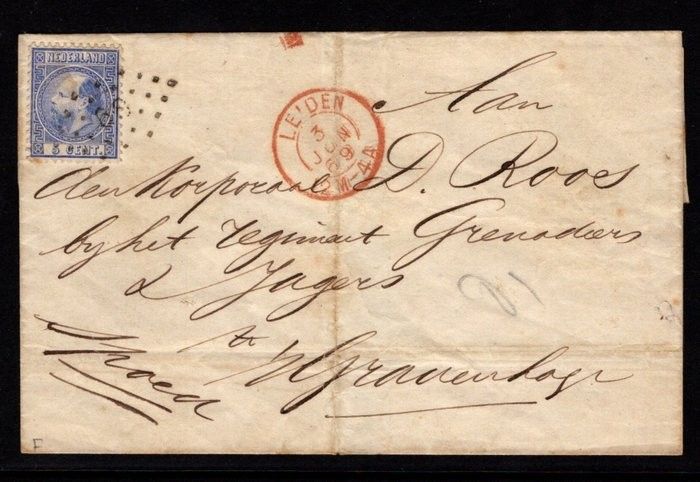 NEDERLAND
5 CENT.
LEIDEN
3 JUN
69
12M-4A
Aan
den Korporaal D. Roos
by het Regiment Grenadiers
& Jagers
te
'sGravenhage
Spoed
F